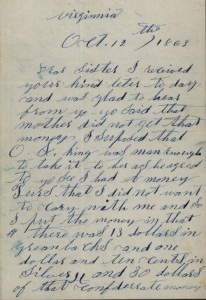 Virginnia
Oct. 12 th / 1863
Dear Sister I received
your kind leter to day
and was glad to hear
from yo yo said that
mother did not get that
money I suposed that
O. L. King was man enough
to take it to her as he agreed
to yo se I had a money
purs that I did not want
to cary with me and so
I put the money in that
there was 13 dollars in
greenbacks and one
dollar and ten cents in
Silver and 30 dollars
of that confederate money